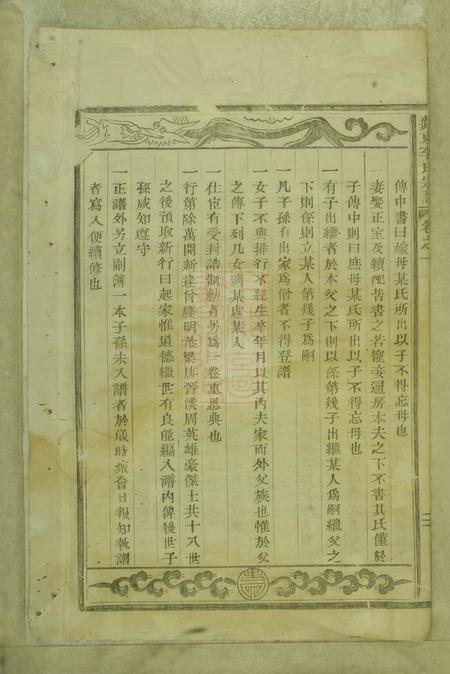 傳中書曰嫁母某氏所出以子不得忘母也
一妻娶正室及續配皆書之若寵妾通房本夫之下不書其氏僅於
子傳中則曰庶母某氏所出以子不得忘母也
一有子出繼者於本父之下則以係第幾子出繼某人爲嗣繼父之
下則係則立某人第幾子爲嗣
一凡子孫有出家爲僧者不得登譜
一女子不與排行不註生卒年月以其內夫家而外父族也惟於父
之傳下列几女適某處某人
一仕宦有受封誥制勅者另爲一卷重恩典也
一行第除萬開新達付慶明堯梁唐晉漢周英雄豪傑士共十八世
之後預取新行曰起家惟道德繼世有良能編入譜內俾後世子
孫咸知遵守
一正譜外另立副簿一本子孫未入譜者於歲時聚會日報知執譜
者寫入便續修也
李氏宗譜
卷之一